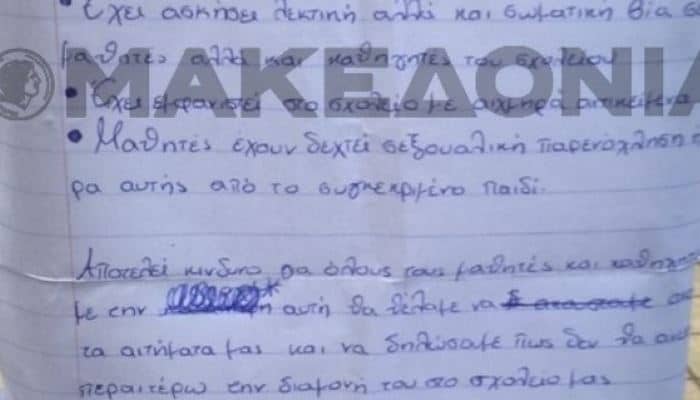 • Έχει ασκήσει λεκτική αλλά και σωματική βία σε
μαθητές αλλά και καθηγητές του σχολείου
ΜΑΚΕΔΟΝΙΑ
• Έχει εμφανιστεί στο σχολείο με αιχμηρά αντικείμενα
• Μαθητές έχουν δεχτεί σεξουαλική παρενόχληση
ρα αυτής από το συγκεκριμένο παιδί.
Αποτελεί κίνδυνο για όλους τους μαθητές και
με την αυτή θα θέλαμε να
τα αιτήματα μας και να δηλώσαμε πως δεν θα
περαιτέρω την διαμονή του στο σχολείο μας